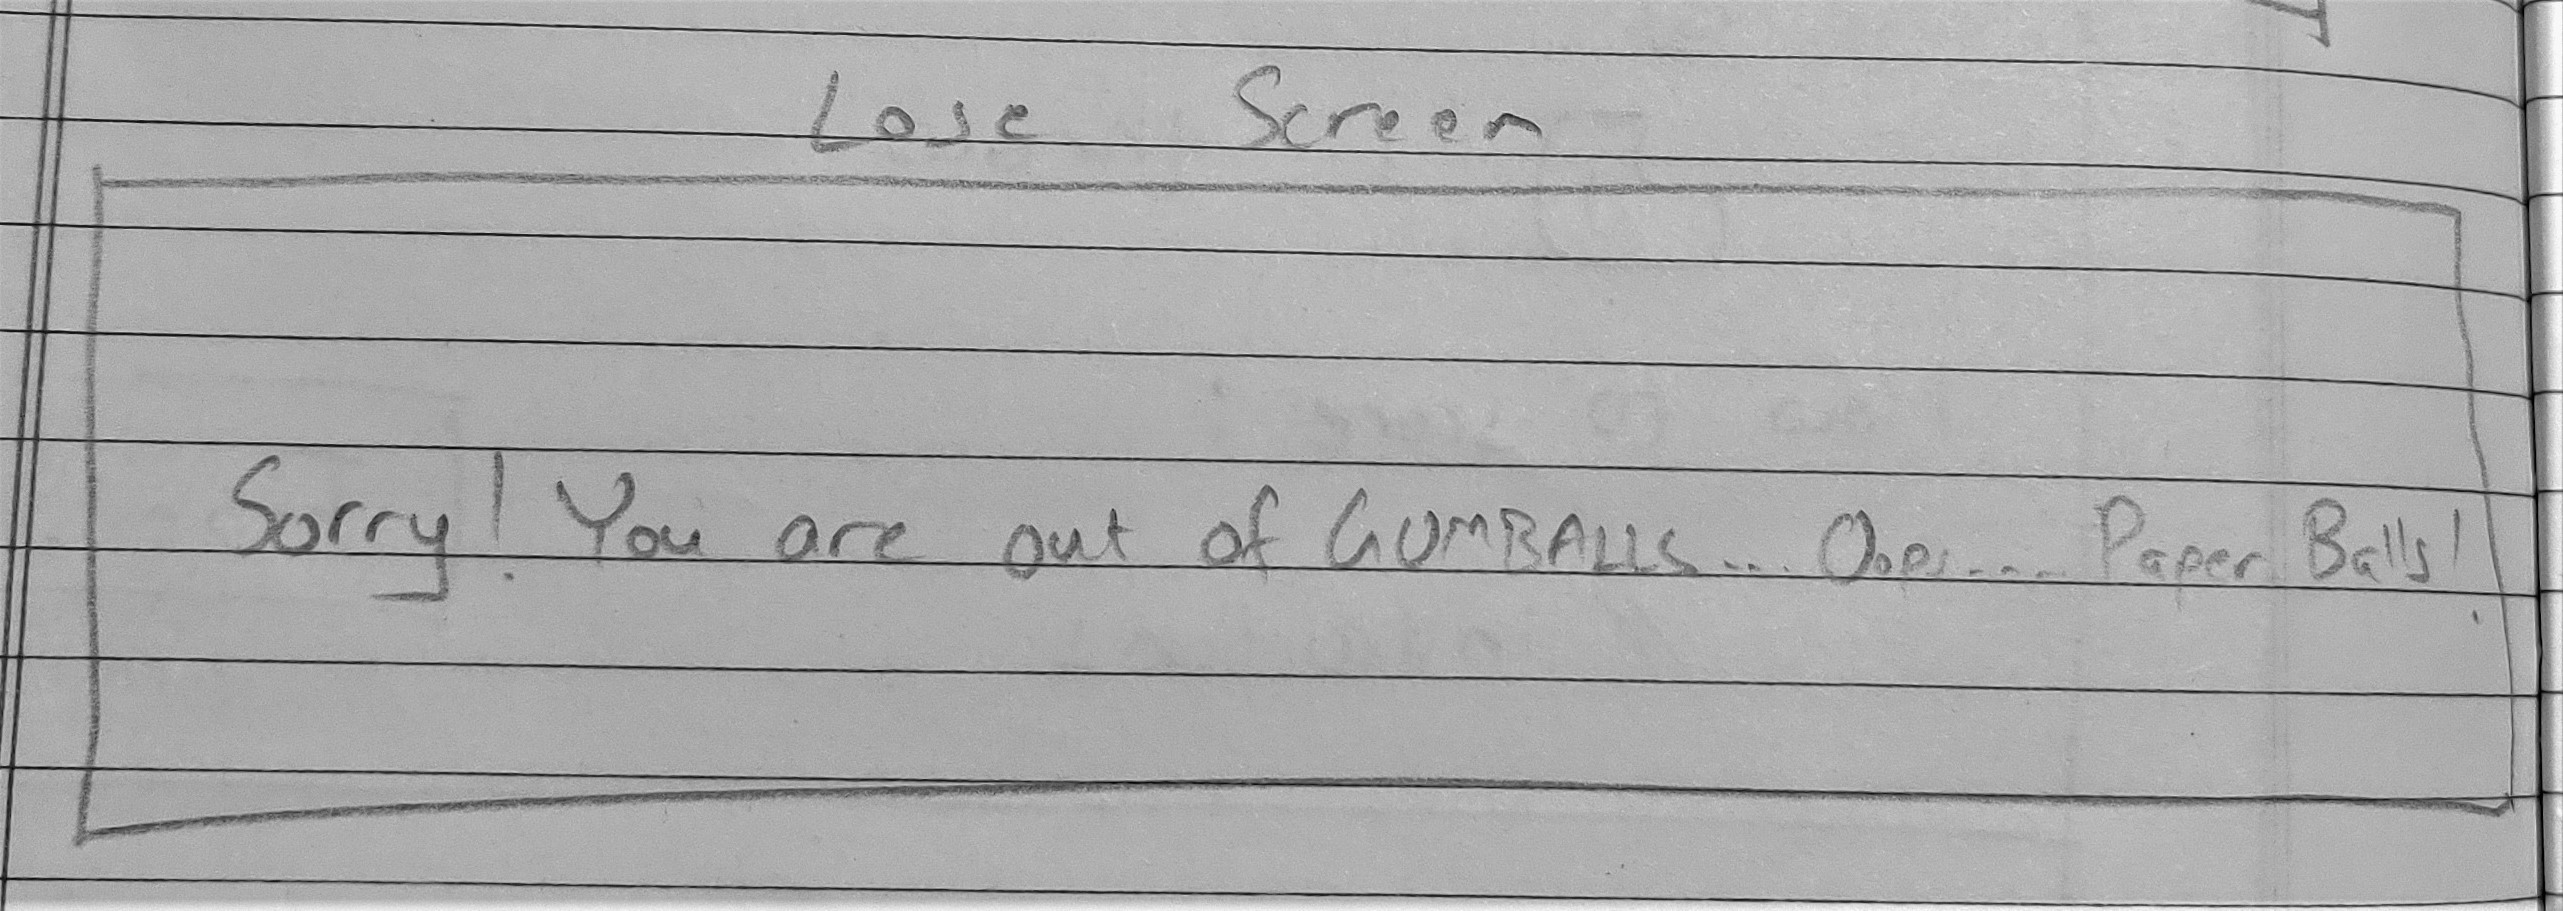 Lose Screen
Sorry! You are out of GUMBALLS... Oops.... Paper Balls!